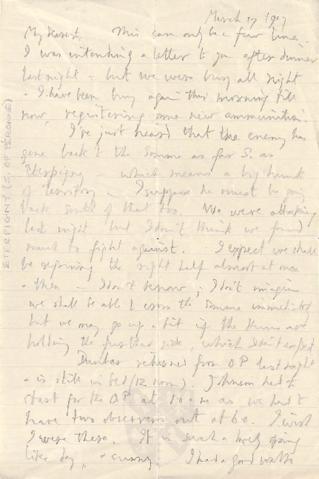 March 17 1917
My dearest, This can only be a few lines.
I was intending a letter to you after dinner
last night - but we were busy all night
& I have been busy again this morning till
now, registering some new ammunition.
I've just heard that the enemy has
gone back to the Somme as far S. as
Eterpigny - which means a big chunk
of territory - I suppose he must be going
back south of that too. We were attacking
last night but I don't think we found
much to fight against. I expect we shall
be rejoining the right half almost at once
& then - I don't know. I don't imagine
we shall be able to cross the Somme immediately
but we may go up a bit if the Huns are
holding the further side, which I don't expect
returned from OP last night
& is still in bed (12 noon). Johnson had to
start for the OP at 10 a.m. as we had to
have two observers out at 60. I wish
I were there. It is such a lovely spring
like day, & sunny. I had a good
ETERPIGNY (S. OF PERONNE)